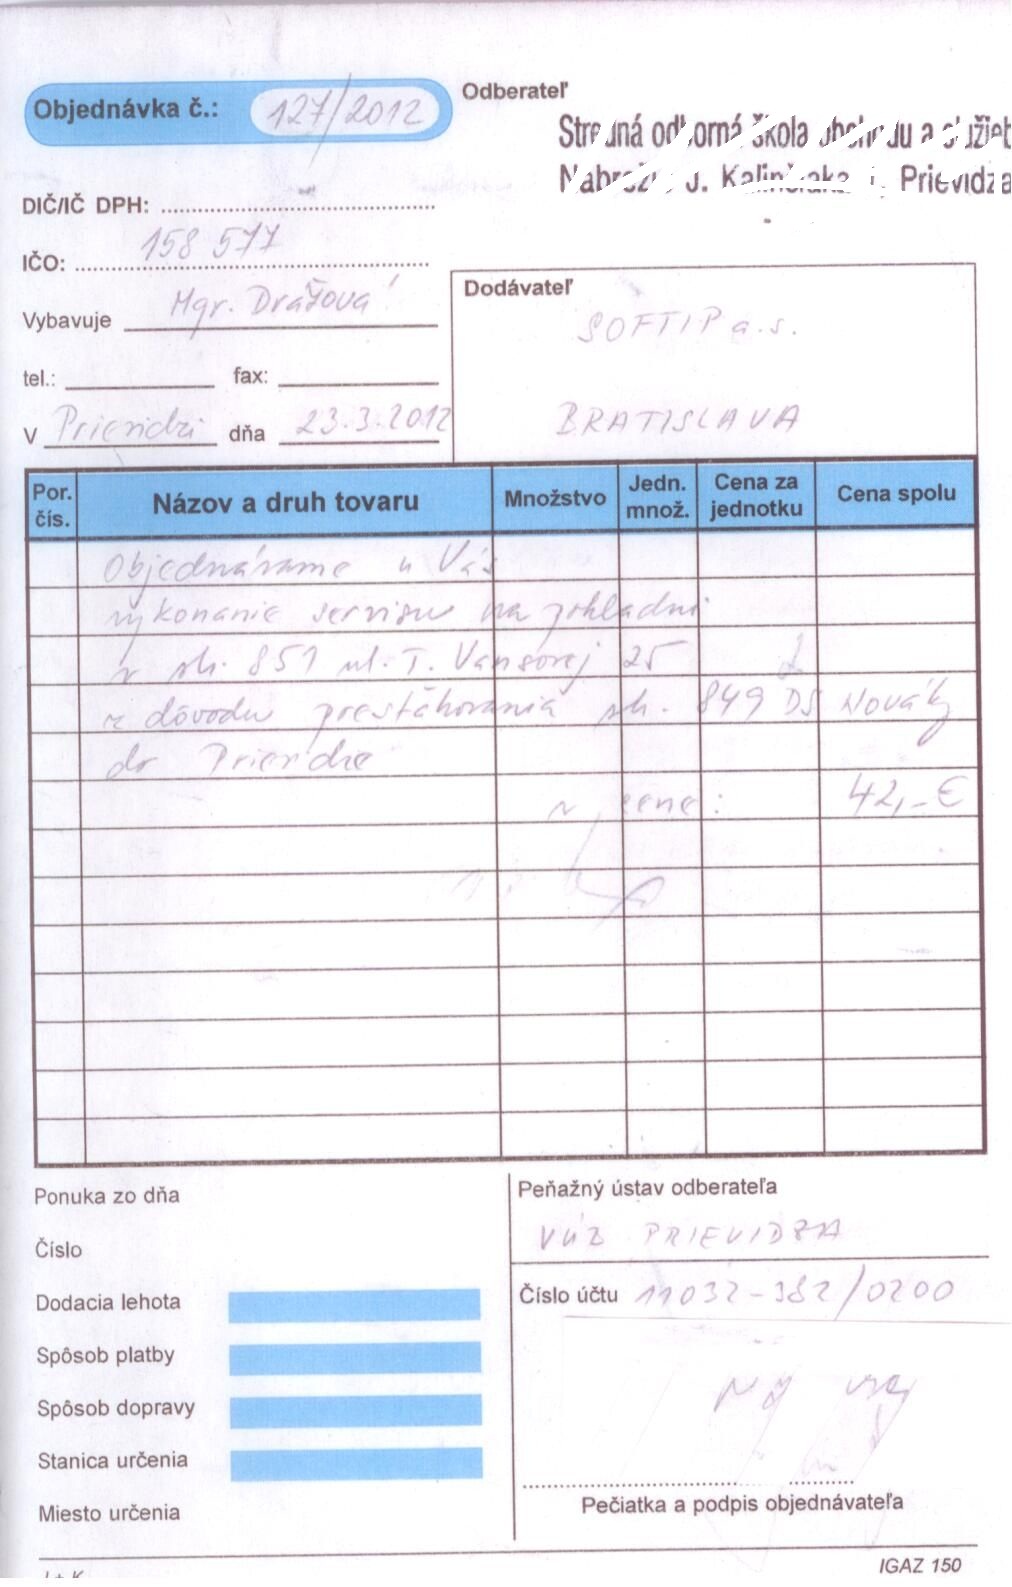 Objednávka č.: 127/2012
Odberateľ
Stredná odborná škola obchodu a služieb
J. Kalinčiaka 1, Prievidza
DIČ/IČ DPH:
IČO: 158 577
Vybavuje Mgr. Drážová
tel.: fax:
V Prievidzi dňa 23.3.2012
Dodávateľ
SOFTIP a.s.
BRATISLAVA
Por. čís. Názov a druh tovaru Množstvo Jedn. množ. Cena za jednotku Cena spolu
Objednávame u Vás
vykonanie servisu na pokladni
v sk. 851 ul. T. Vansovej 25
z dôvodu presťahovania sk. 849 DS Nováky
do Prievidze
v cene: 42,-€
Ponuka zo dňa
Číslo
Dodacia lehota
Spôsob platby
Spôsob dopravy
Stanica určenia
Miesto určenia
Peňažný ústav odberateľa
VÚB PRIEVIDZA
Číslo účtu 11032-382/0200
Pečiatka a podpis objednávateľa
IGAZ 150